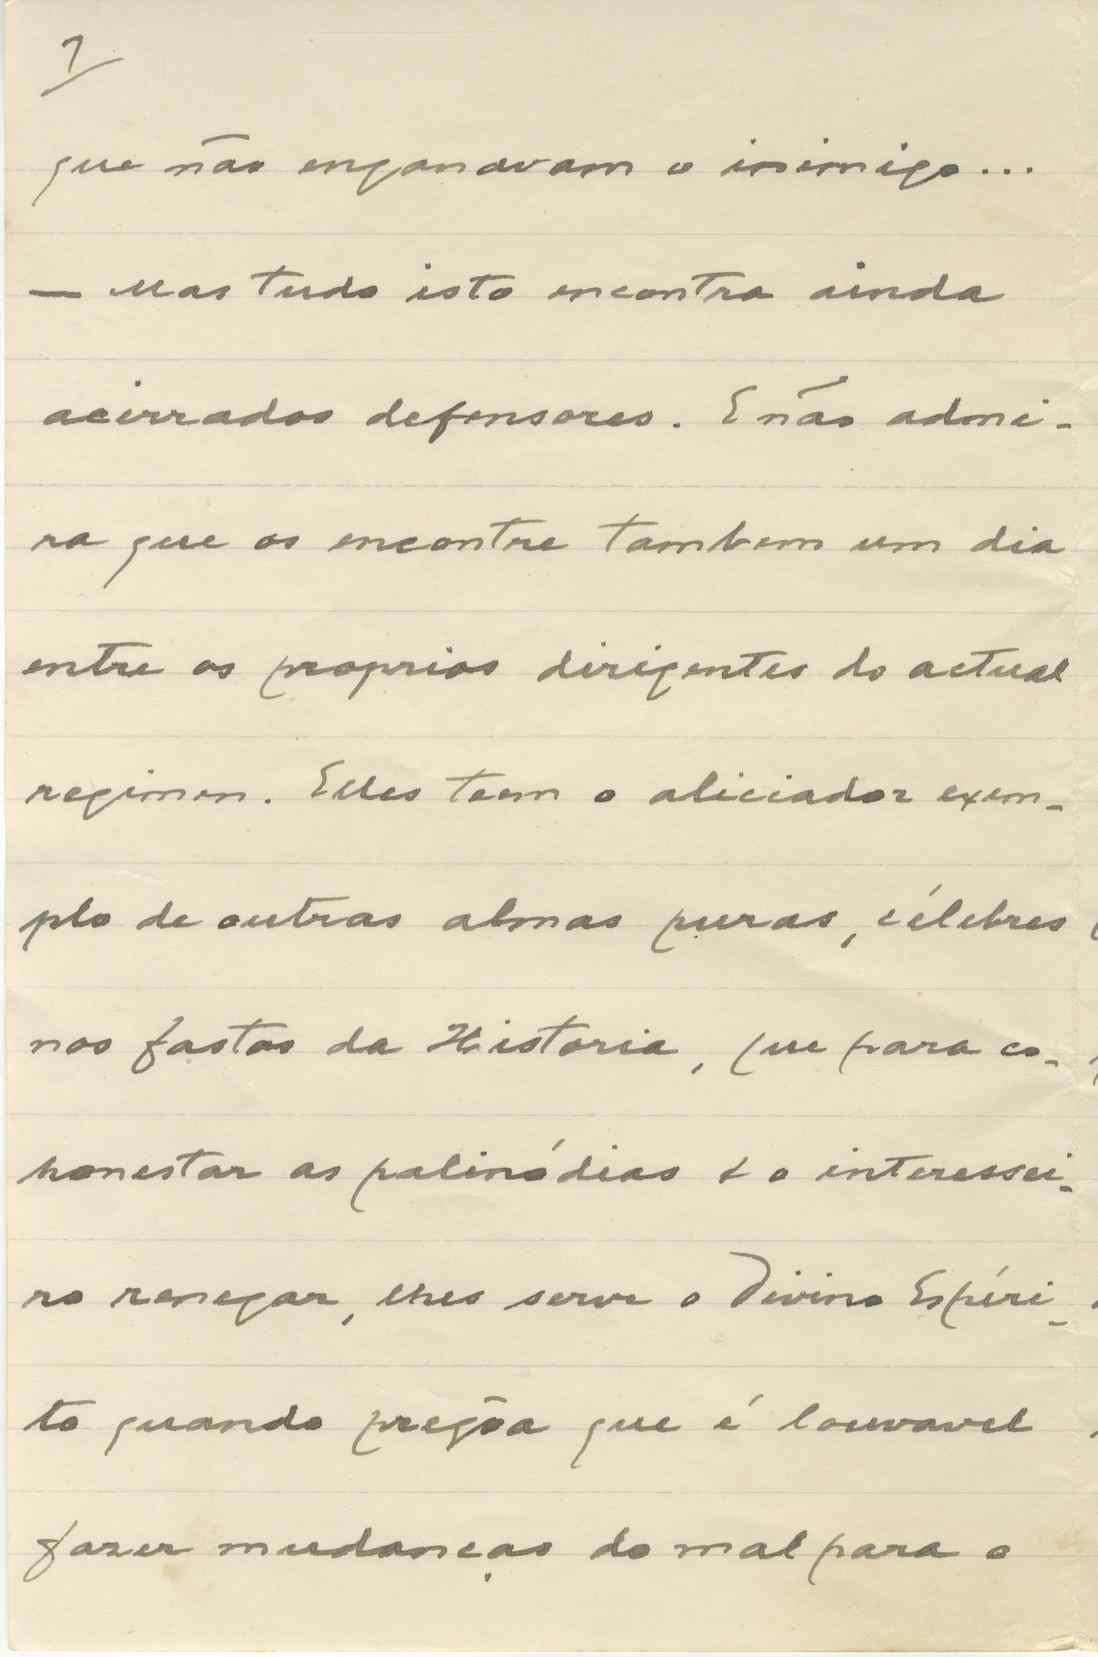 7
que não enganavam o inimigo...
— Mas tudo isto encontra ainda
acirrados defensores. E não admi-
ra que os encontre tambem um dia
entre os proprios dirigentes do actual
regimen. Elles teem o aliciador exem-
plo de outras almas puras, célebres
nos fastos da Historia, que para co-
honestar as palinódias e o interessei-
ro renegar, lhes serve o Divino Espíri-
to quando pregôa que é louvavel
fazer mudanças do mal para o